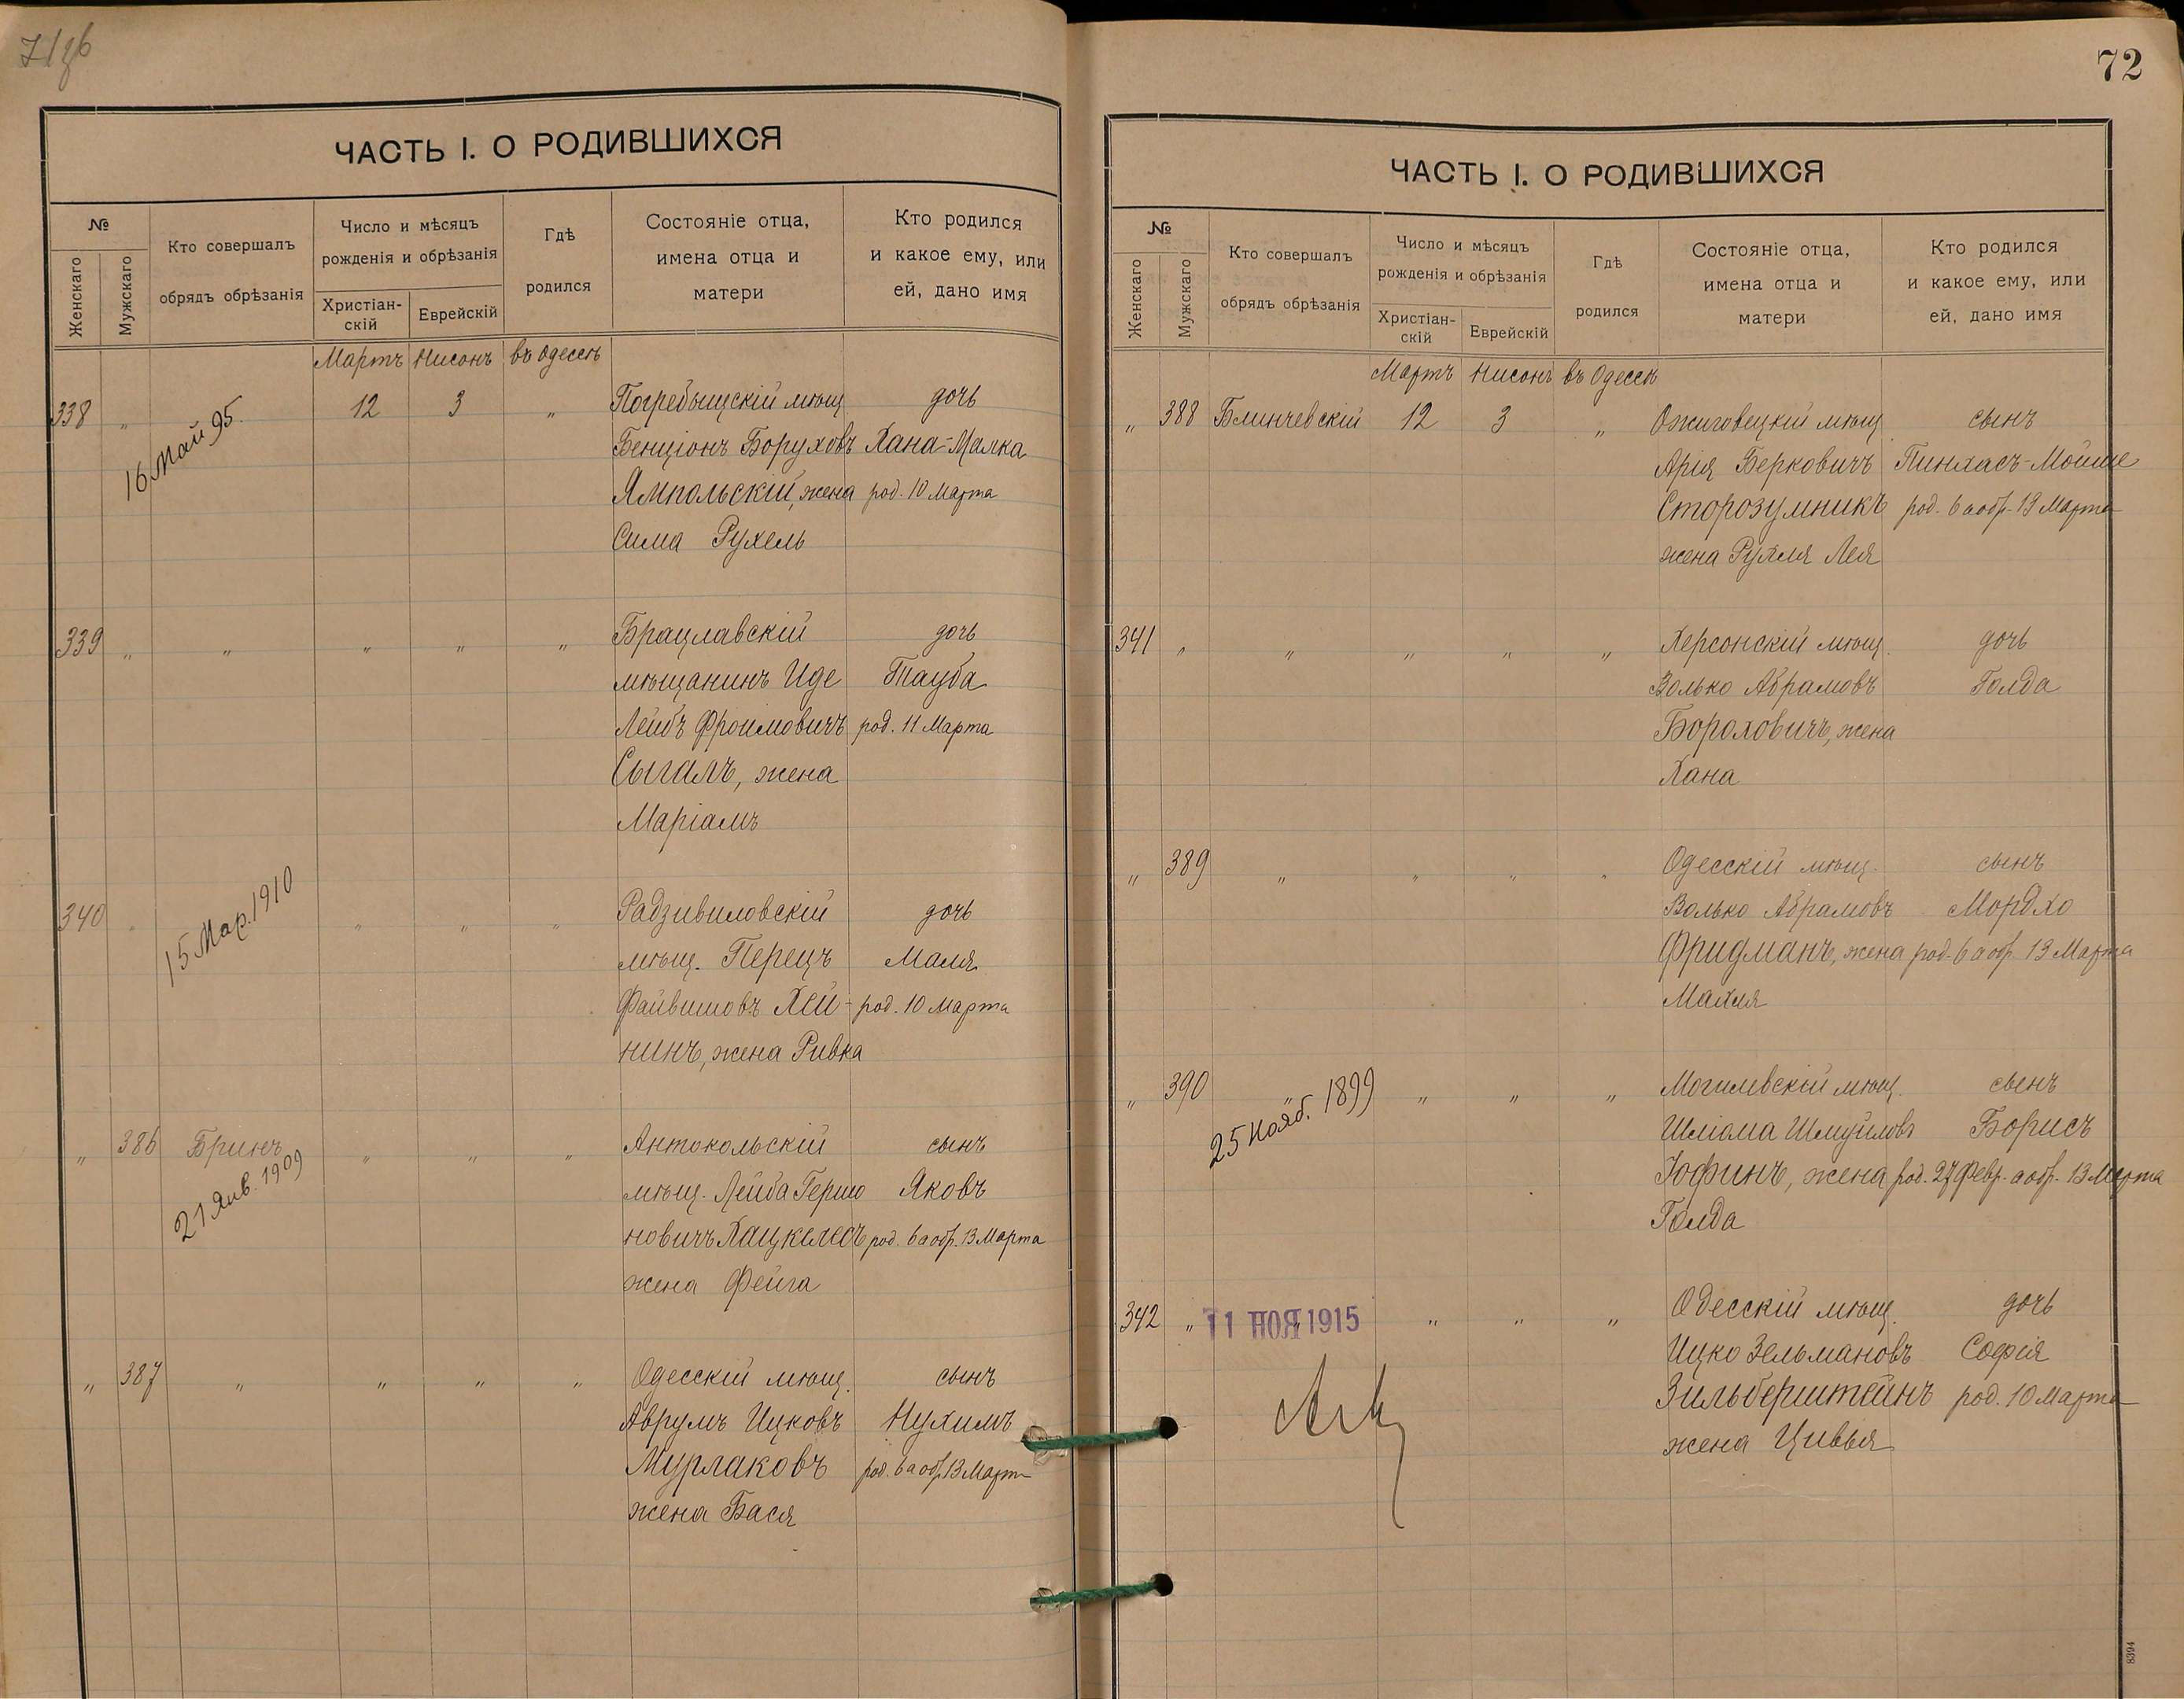 71об
ЧАСТЬ I. О РОДИВШИХСЯ
№
Женскаго
Мужскаго
Кто совершалъ
обрядъ обрѣзанія
Число и мѣсяцъ
рожденія и обрѣзанія
Христіан-
скій
Еврейскій
Гдѣ
родился
Состояніе отца,
имена отца и
матери
Кто родился
и какое ему, или
ей, дано имя
Мартъ Нисонъ въ Одессѣ
338 " 16 Май 95. 12 3 " Погребыщскій мѣщ дочь
Бенціонъ Боруховъ Хана-Малка
Ямпольскій, жена род. 10 Марта
Сима Рухель
339 " " " " " Брацлавскій дочь
мѣщанинъ Иде Тауба
Лейбъ Фроимовичъ род. 11 Марта
Сыгалъ, жена
Маріамъ
340 " 15 Мар. 1910 " " " Радзивиловскій дочь
мѣщ. Перецъ Маля
Файвишовъ Хей- род. 10 Марта
нинъ, жена Ривка
" 386 Бринъ " " " Антокольскій сынъ
21 Янв. 1909
мѣщ. Лейба Гершо Яковъ
новичъ Хацкелесъ род. 6 а обр. 13 Марта
жена Фейга
" 387 " " " " Одесскій мѣщ. сынъ
Аврумъ Ицковъ Нухимъ
Мурлаковъ род. 6 а обр. 13 Марта
жена Бася
72
ЧАСТЬ I. О РОДИВШИХСЯ
№
Женскаго
Мужскаго
Кто совершалъ
обрядъ обрѣзанія
Число и мѣсяцъ
рожденія и обрѣзанія
Христіан-
скій
Еврейскій
Гдѣ
родился
Состояніе отца,
имена отца и
матери
Кто родился
и какое ему, или
ей, дано имя
Мартъ Нисонъ въ Одессѣ
" 388 Блинчевскій 12 3 " Ожиговецкій мѣщ сынъ
Арія Берковичъ Пинхасъ-Мойше
Сторозумникъ род. 6 а обр. 13 Марта
жена Рухля Лея
341 " " " " " Херсонскій мѣщ. дочь
Волько Абрамовъ Голда
Бороховичъ, жена
Хана
" 389 " " " " Одесскій мѣщ. сынъ
Волько Абрамовъ Мордхо
Фридманъ, жена род. 6 а обр. 13 Марта
Махля
" 390 " " " " Могилевскій мѣщ. сынъ
25 Нояб. 1899
Шліома Шмуйловъ Борисъ
Іофинъ, жена род. 27 Февр. а обр. 13 Марта
Голда
342 " 11 НОЯ 1915 " " " Одесскій мѣщ. дочь
Ицко Зельмановъ Софія
Зильберштейнъ род. 10 Марта
жена Цивья
8394